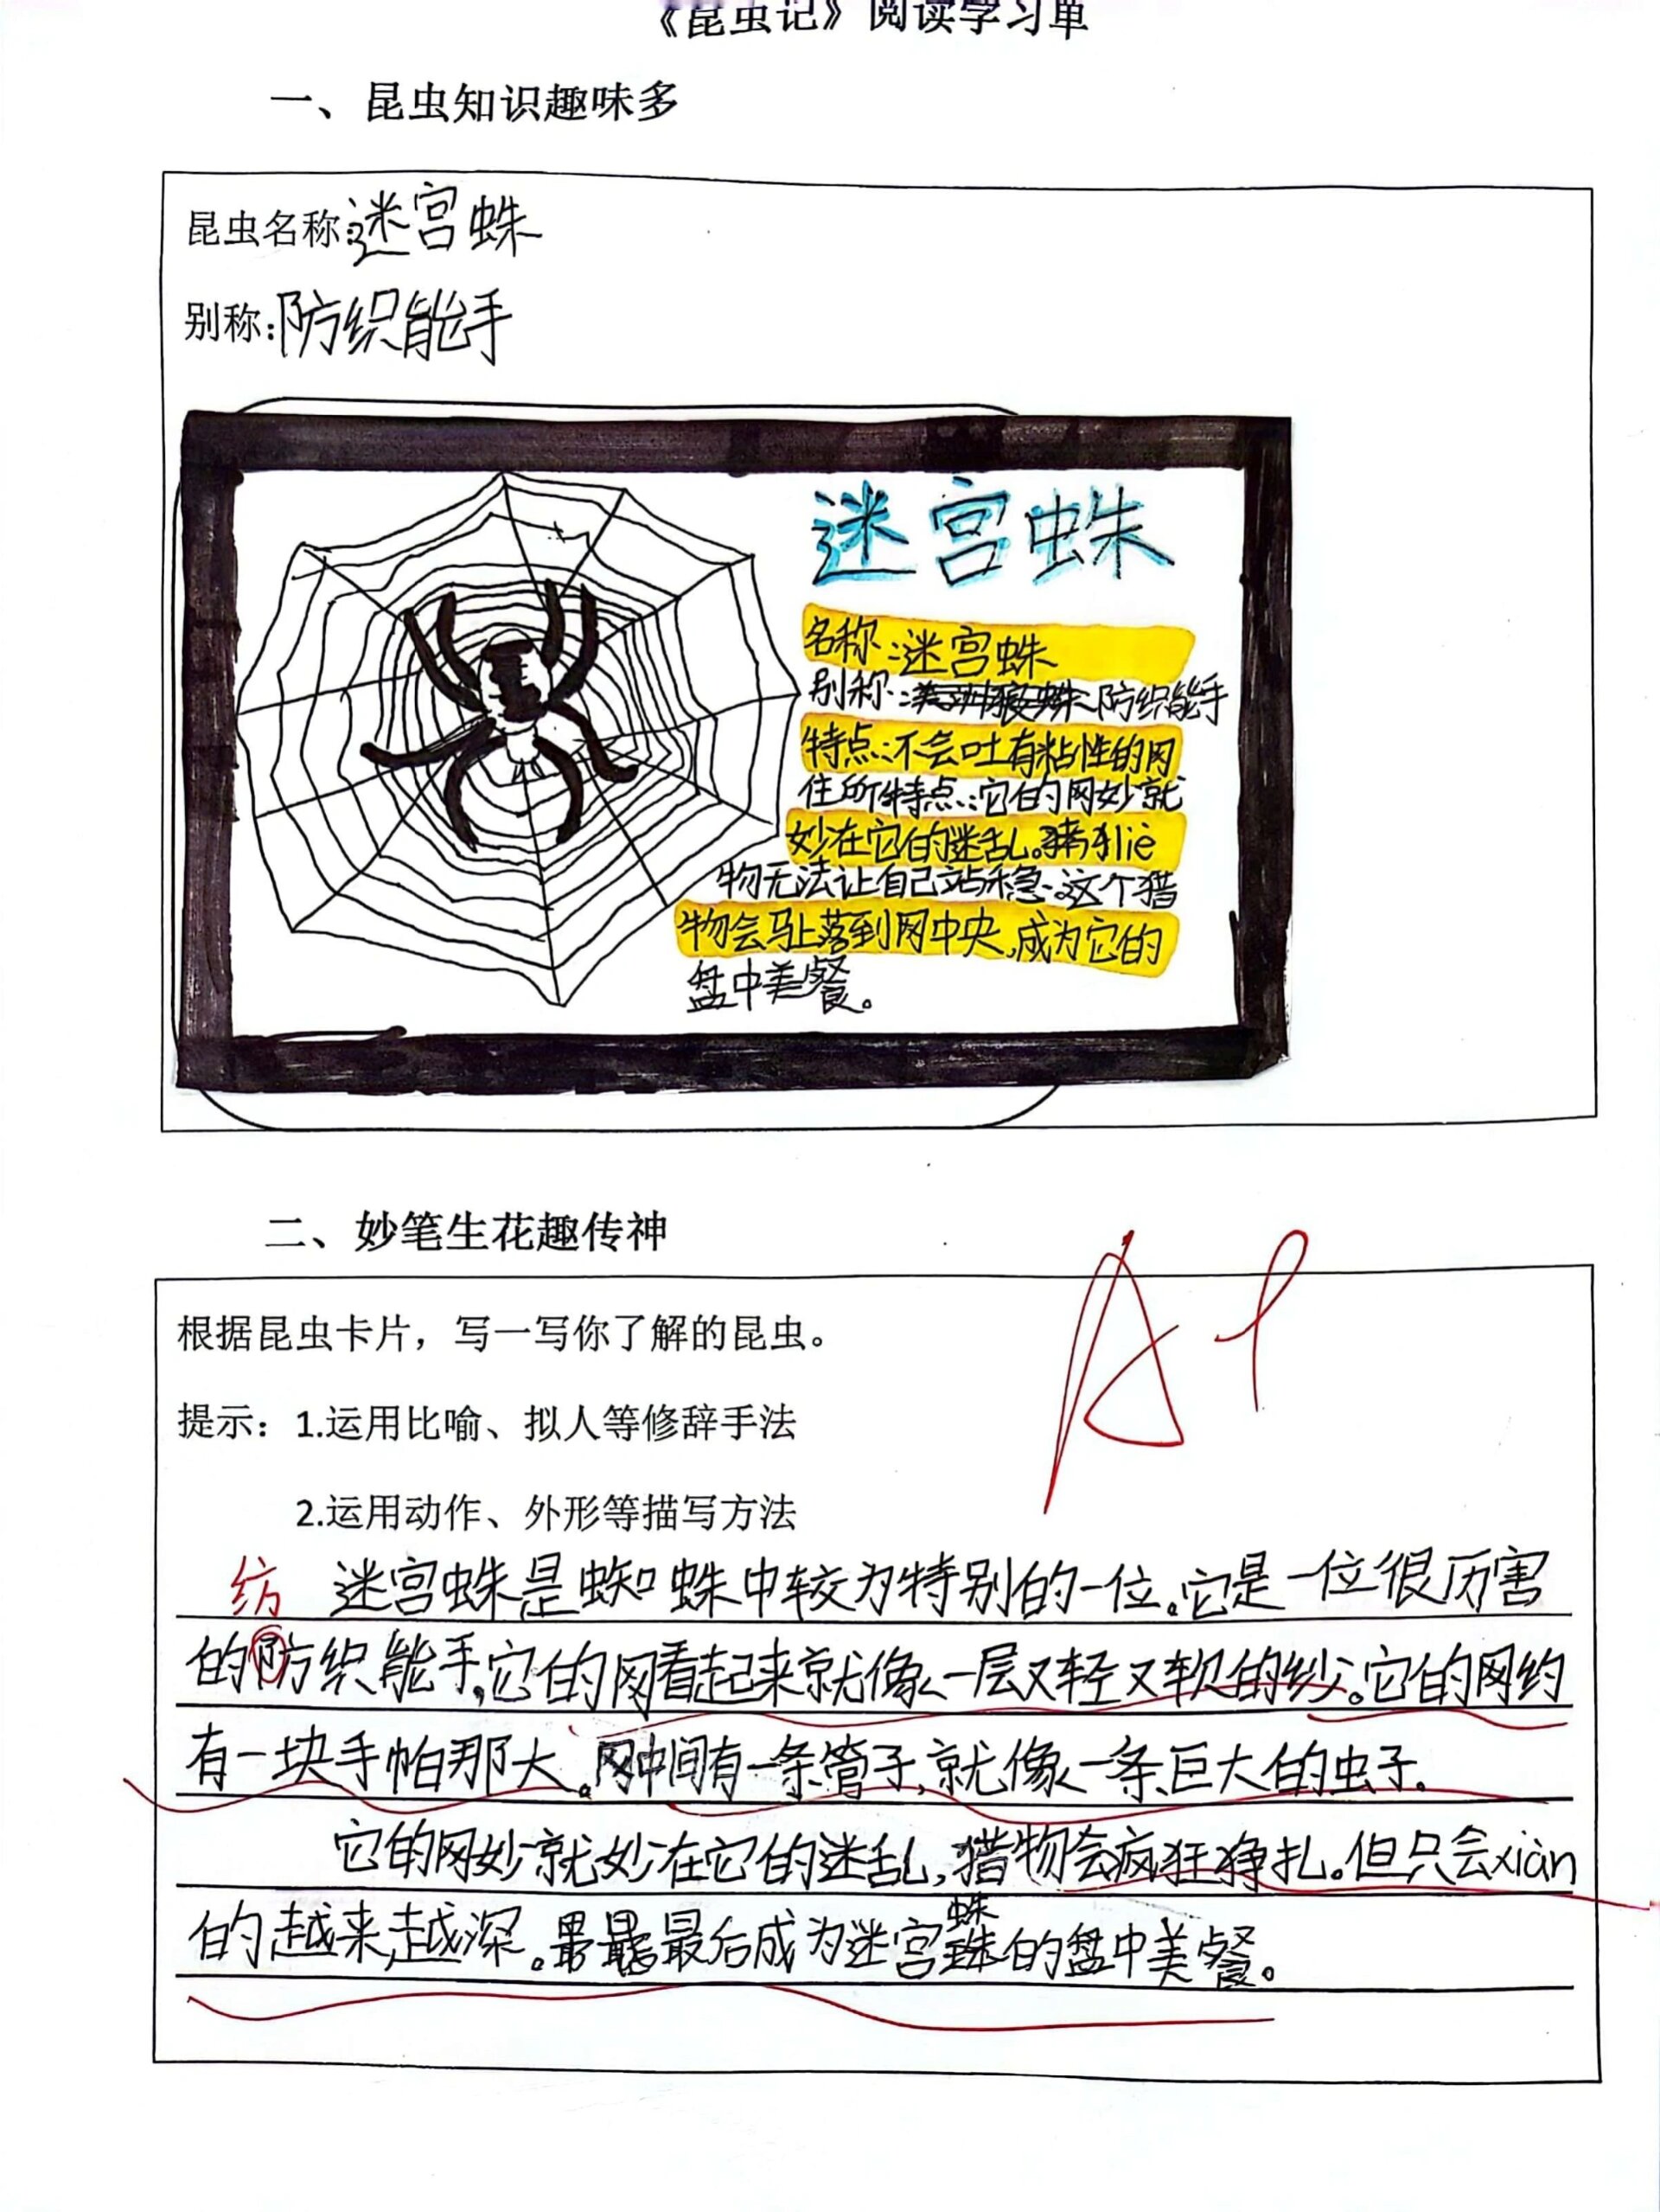 《昆虫记》阅读学习单
一、昆虫知识趣味多
昆虫名称:迷宫蛛
别称:防织能手
迷宫蛛
名称:迷宫蛛
别称:防织能手
特点:不会吐有粘性的网
住所特点:它的网妙就
妙在它的迷乱。liè
物无法让自己站稳.这个猎
物会马上落到网中央,成为它的
盘中美餐。
二、妙笔生花趣传神
A+
根据昆虫卡片，写一写你了解的昆虫。
提示：1.运用比喻、拟人等修辞手法
2.运用动作、外形等描写方法
纺
迷宫蛛是蜘蛛中较为特别的一位。它是一位很历害
的防织能手,它的网看起来就像一层又轻又软的纱。它的网约
有一块手帕那大。网中间有一条管子,就像一条巨大的虫子.
它的网妙就妙在它的迷乱,猎物会疯狂挣扎。但只会xiàn
的越来越深。最后成为迷宫蛛的盘中美餐。